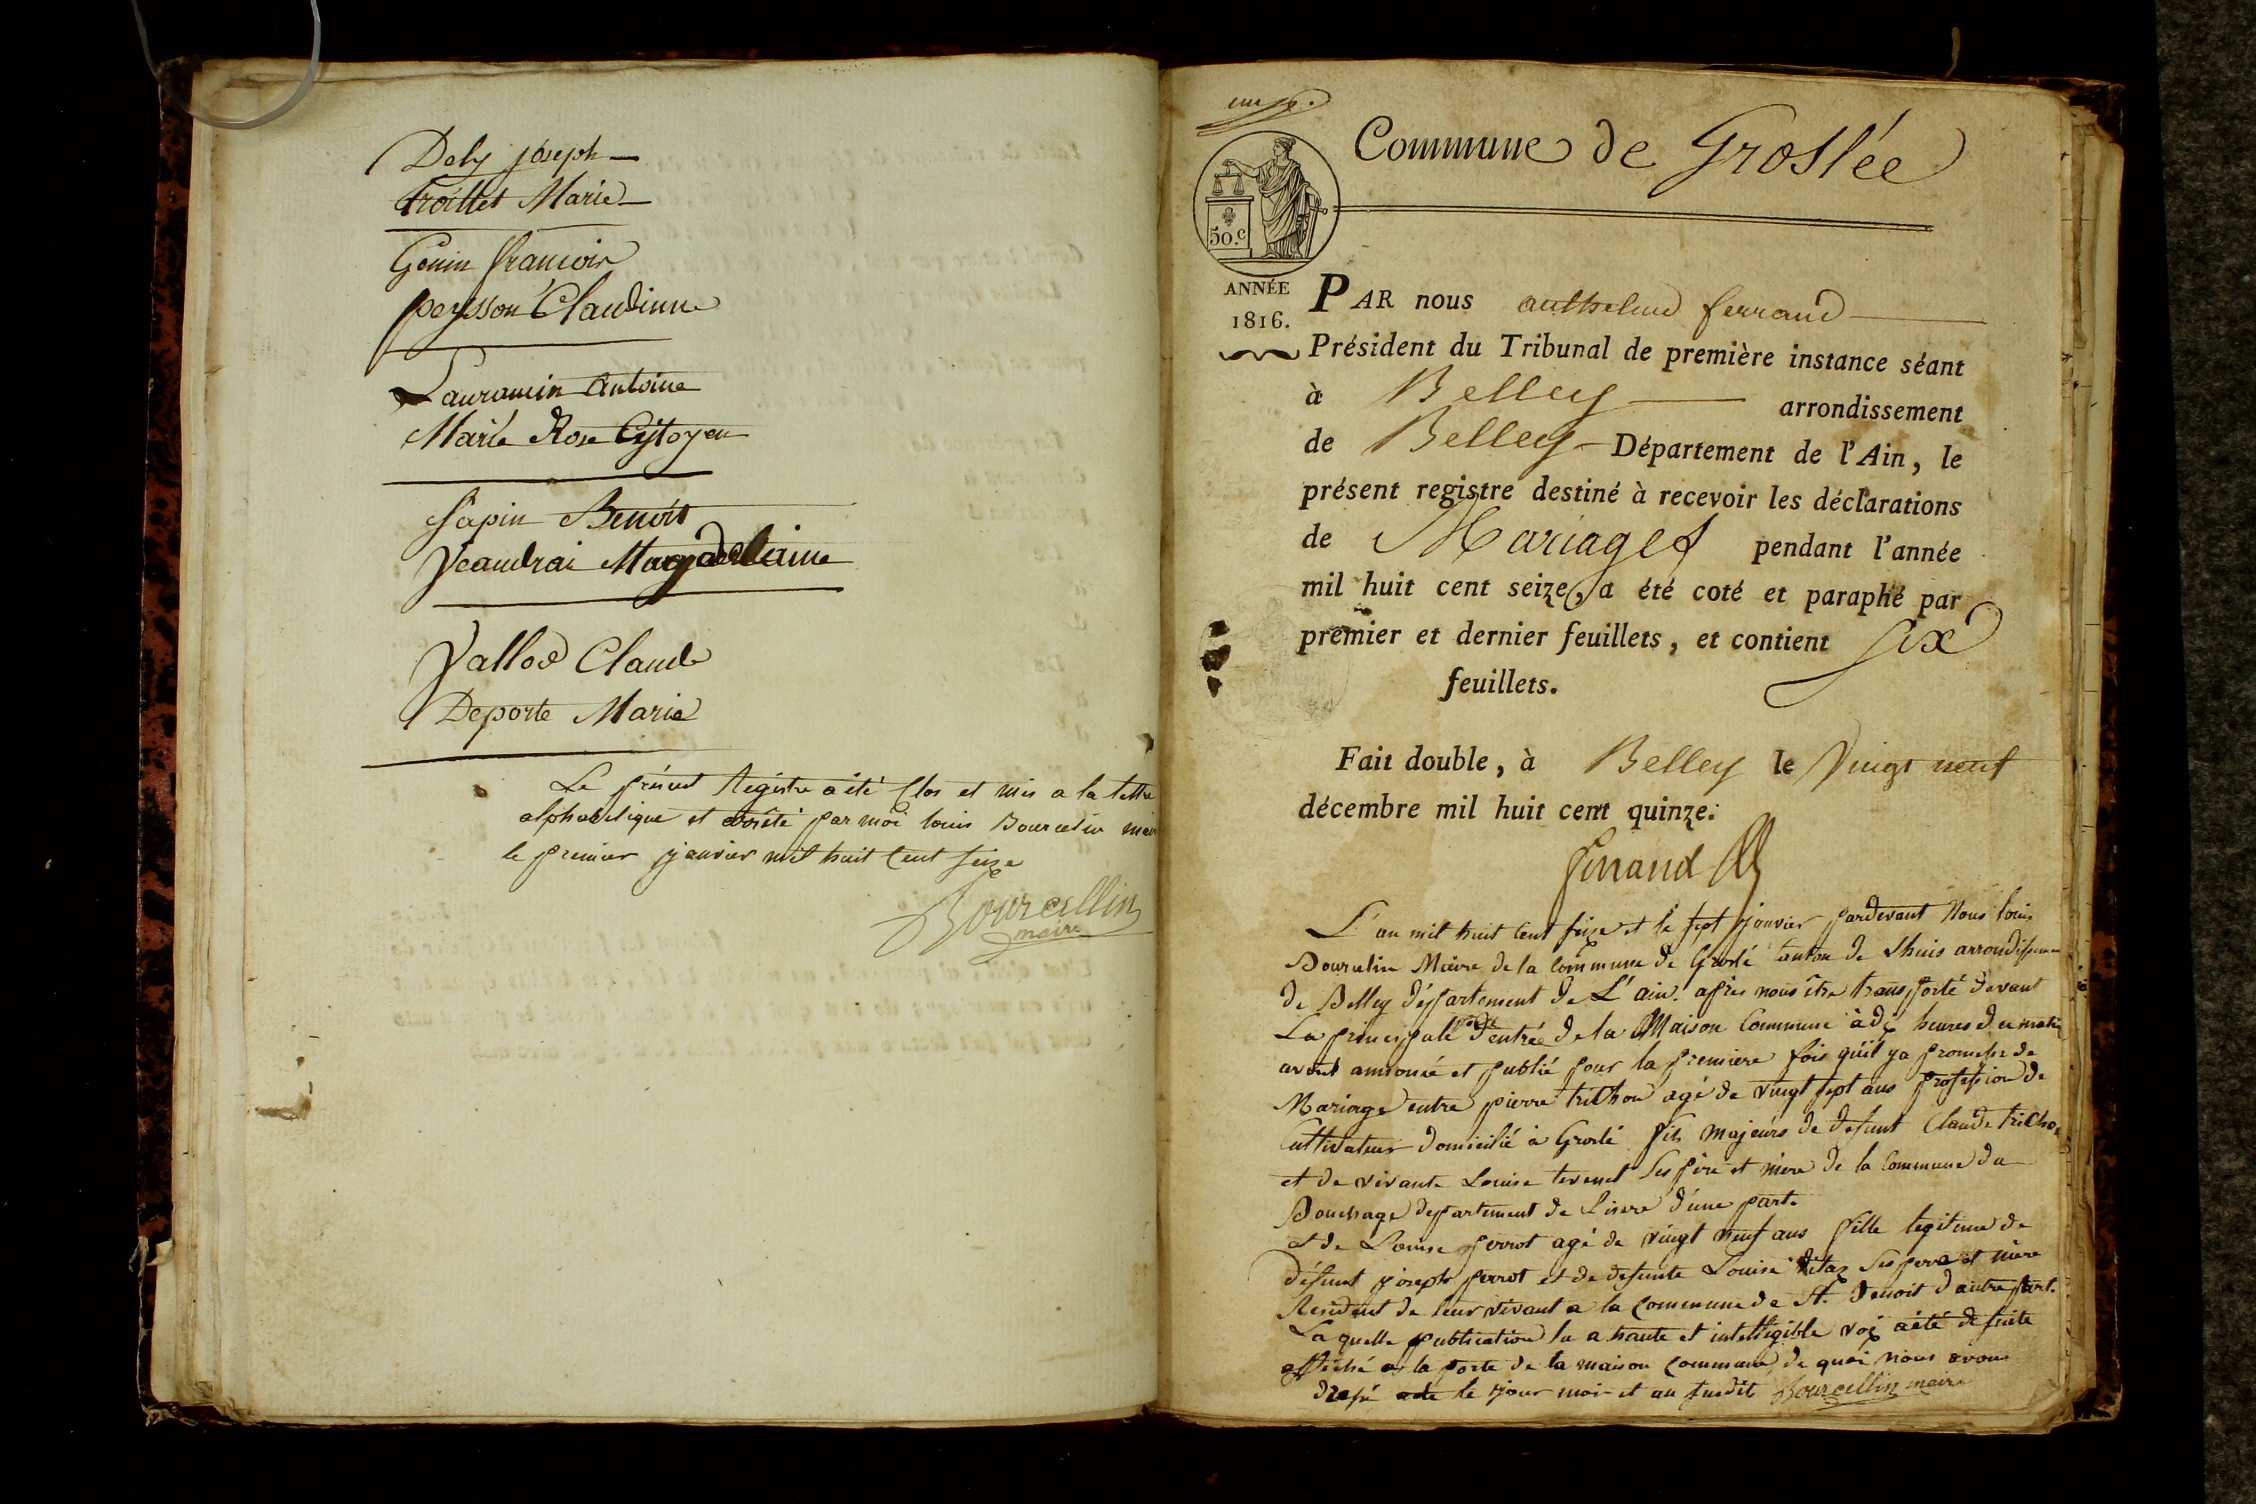 Dely joseph
troillet Marie
Gonin francois
peysson Claudinne
Lauramin Antoine
Marie Rose Cytoyen
Sapin Benoit
Magdelainne
Vallod Claude
Deporte Marie
Le présent Régistre a été Clos et mis a la lettre
alphabetique et arrêté par moi louis Bourcelin
le premier janvier mil huit Cent seize
Bourcellin
maire
Commune de Groslée
50.c
ANNÉE
1816.
PAR nous anthelme ferrand
Président du Tribunal de première instance séant
à Belley arrondissement
de Belley Département de l'Ain, le
présent registre destiné à recevoir les déclarations
de Mariages pendant l'année
mil huit cent seize, a été coté et paraphé par
premier et dernier feuillets, et contient six
feuillets.
Fait double, à Belley le Vingt neuf
décembre mil huit cent quinze.
ferrand
L'an mil huit Cent seize et le sept janvier pardevant Nous louis
Bourcelin Maire de la Commune de Groslé Canton de Lhuis
de Belley département de L'ain. après nous être transporté devant
La principalle porte d'entrée de la Maison Commune à dix heures du matin
avons annoncé et publié pour la premiere fois qu'il y a promesse de
Mariage entre pierre triChon agé de vingt sept ans profession de
Cultivateur domicilié à Groslé fils majeurs de defunt Claude
et de vivante Louise tevenet Ses père et mere de la Commune du
Bouchage departement de Lisere d'une part.
et de Louise perrot agé de vingt neuf ans fille legitime de
défunt joseph perrot et de defunte Louise Ses pere et mère
Resident de leur vivant a la Commune de St. Benoit d'autre part.
La quelle publication lu a haute et intelligible voix a été de suite
affiché a la porte de la maison Commune de quoi nous avons
dressé acte le jour mois et an susdit Bourcellin maire